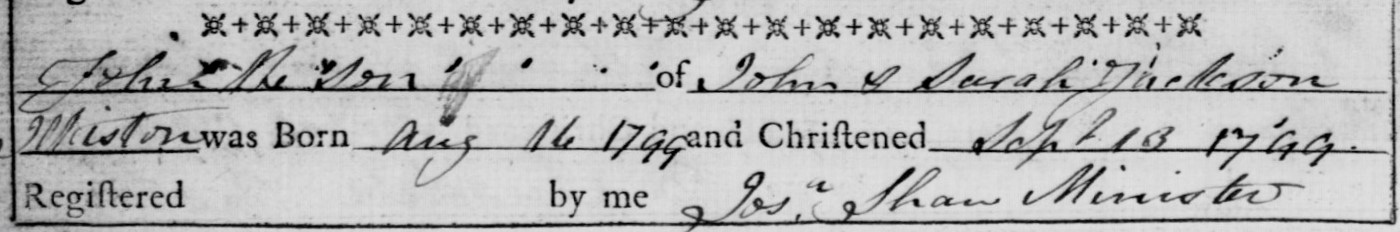 John the Son of John & Sarah Jackson
Whiston was Born Aug 16 1799 and Chriſtened Sept 13 1799.
Regiſtered by me Josa. Shaw Minister